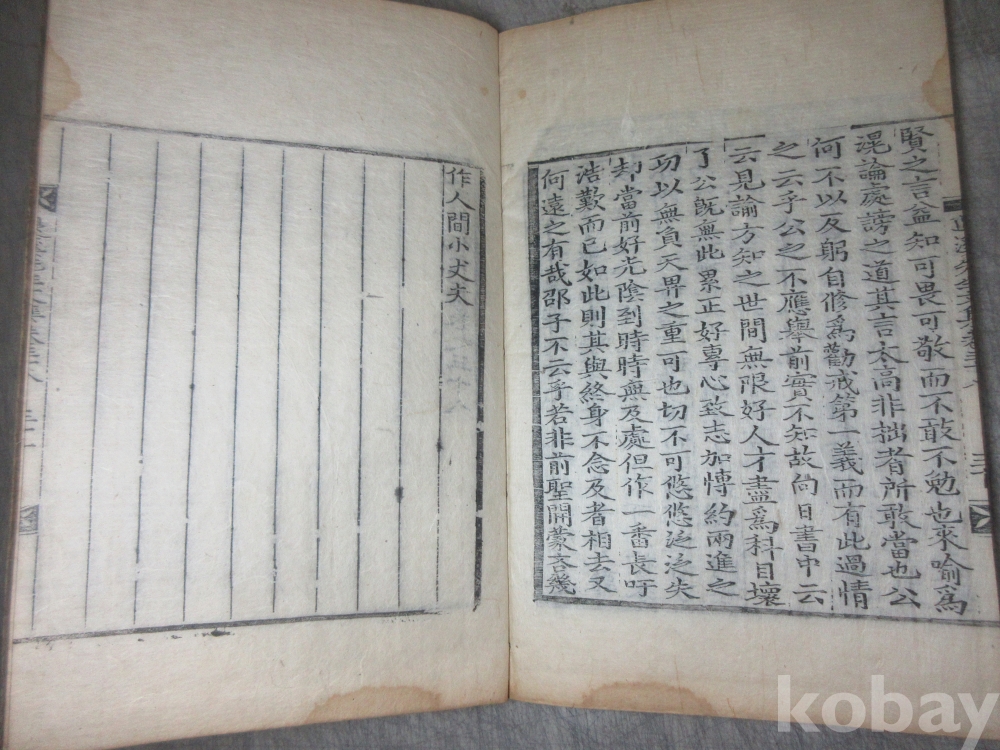 賢之言益知可畏可敬而不敢不勉也來喻爲
混論處謗之道其言太高非拙者所敢當也公
何不以反躬自修爲勸戒第一義而有此過情
之云乎公之不應舉前實不知故向日書中云
云見諭方知之世間無限好人才盡爲科目壞
了公旣無此累正好專心致志加博約兩進之
功以無負天畀之重可也切不可悠悠泛泛失
却當前好光陰到時時無及處但作一番長吁
浩歎而已如此則其與終身不念及者相去又
何遠之有哉邵子不云乎若非前聖開蒙吝幾
作人間小丈夫
kobay